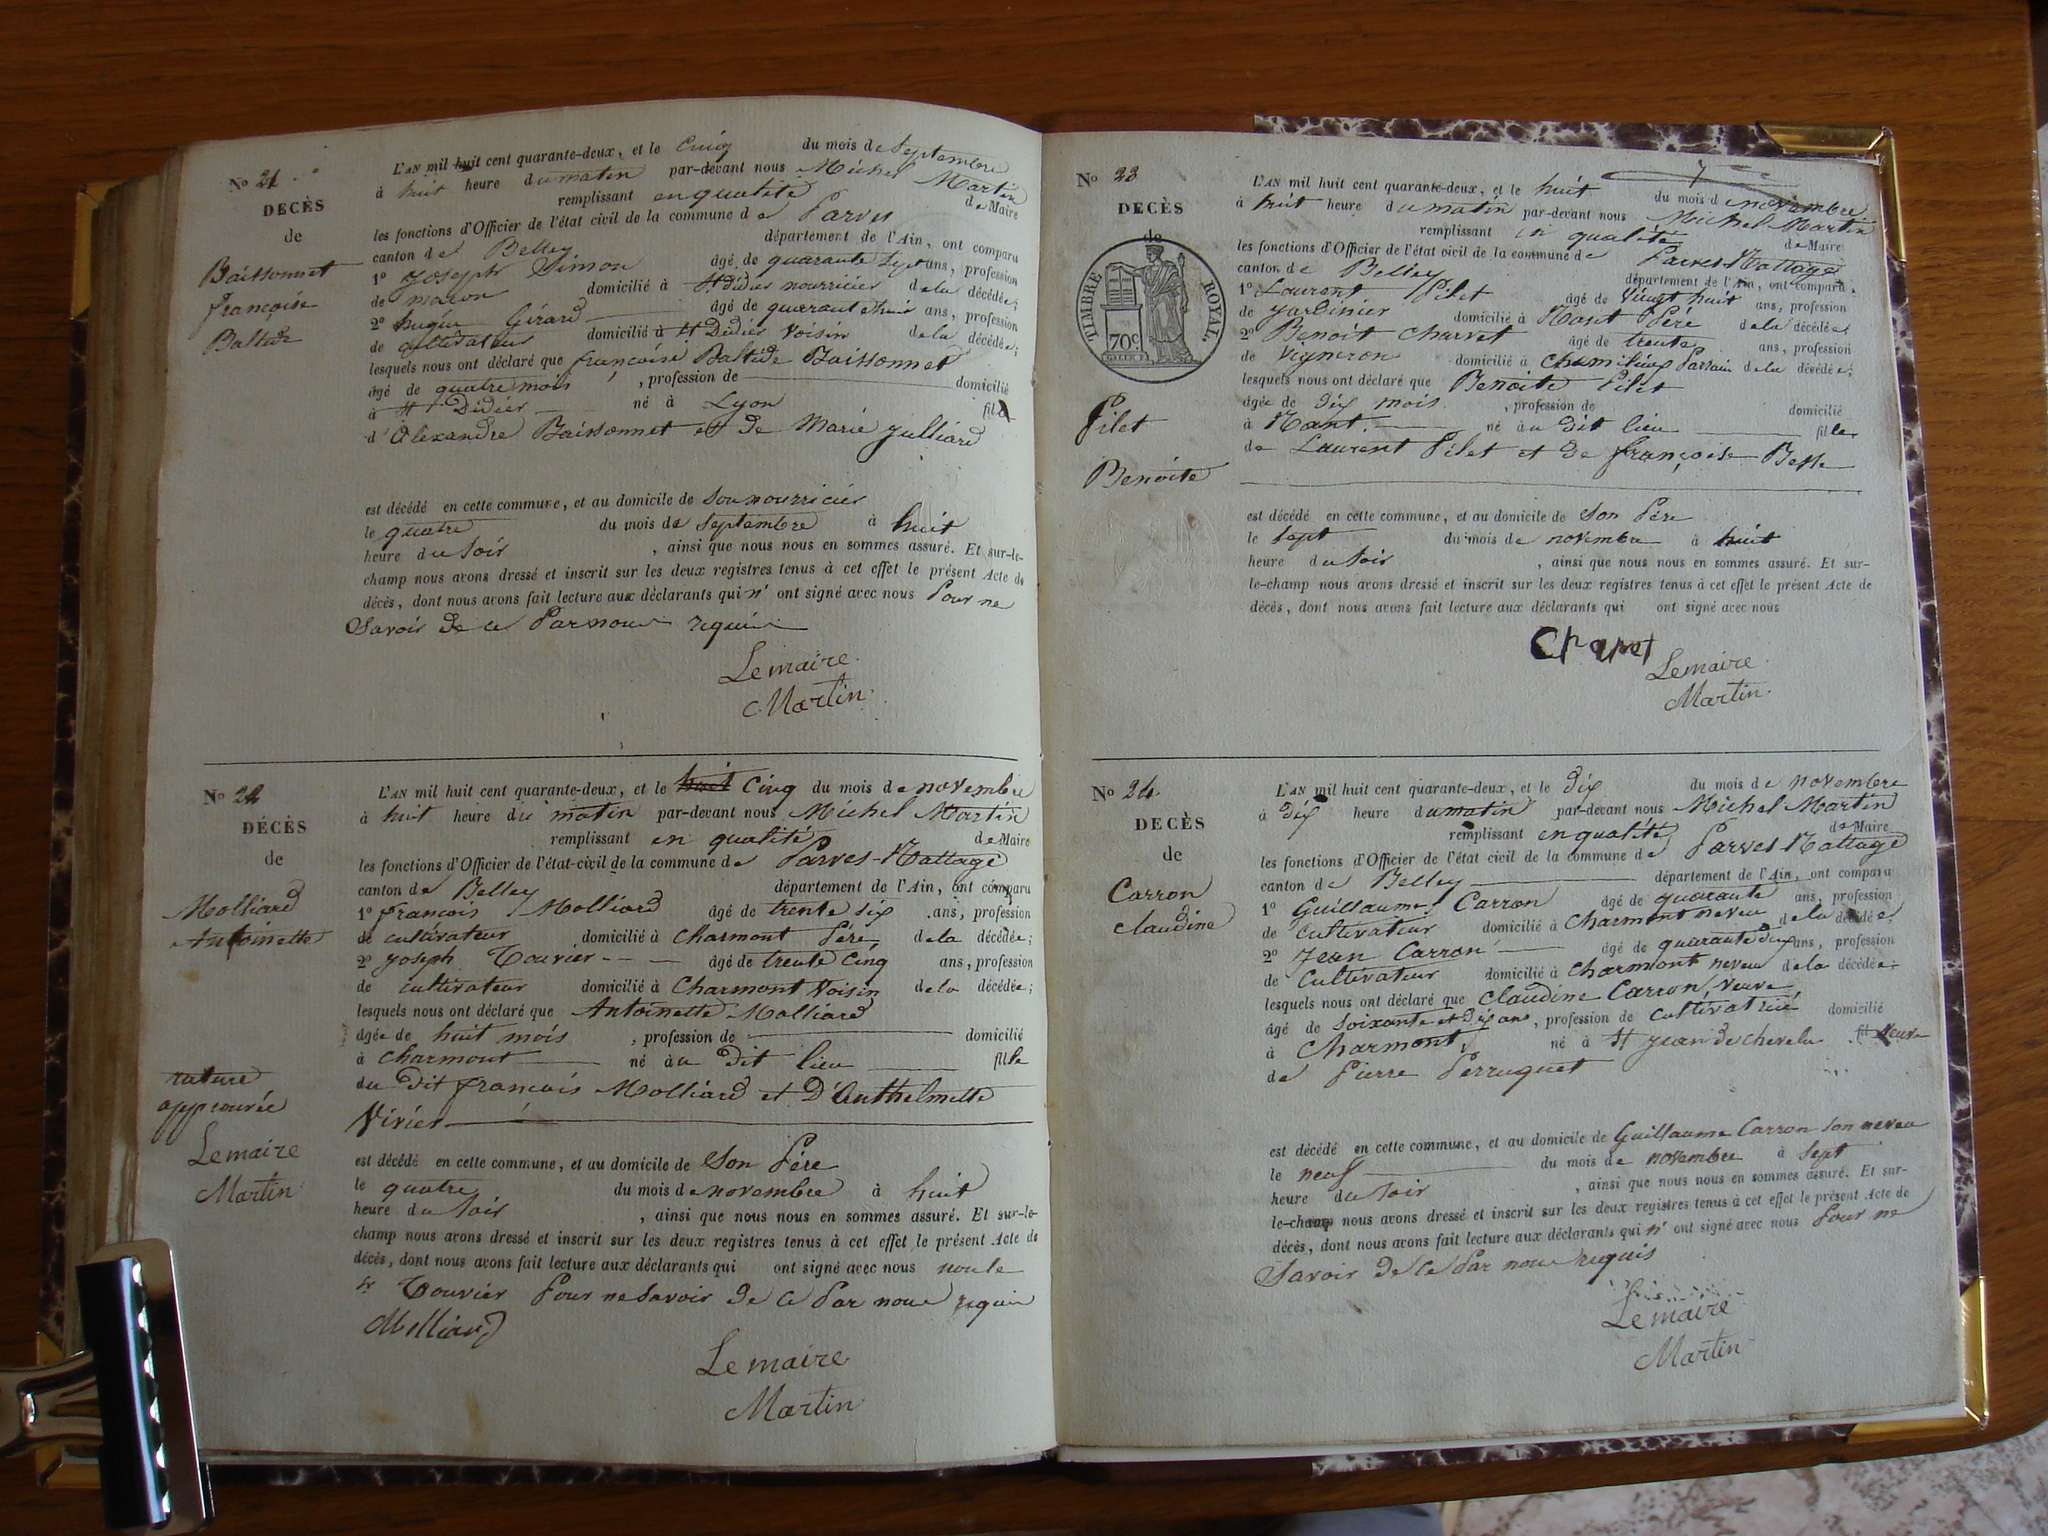 No 21
DECÈS
de
Baissonnet
françoise
Baltide
L'AN mil huit cent quarante-deux, et le Cinq du mois de Septembre
à huit heure du matin par-devant nous Michel Martin
remplissant en qualité de Maire
les fonctions d'Officier de l'état civil de la commune de Parves
canton de Belley département de l'Ain, ont comparu
1º Joseph Simon âgé de quarante sept ans, profession
de maçon domicilié à St Didier nourricier de la décédée;
2º hugue Gérard âgé de quarante huit ans, profession
de cultivateur domicilié à St Didier Voisin de la décédée;
lesquels nous ont déclaré que françoise Baltide Baissonnet
âgé de quatre mois, profession de domicilié
à St Didier né à Lyon fille
d'Alexandre Baissonnet et de Marie Julliard
est décédé en cette commune, et au domicile de Son nourricier
le quatre du mois de Septembre à huit
heure du Soir, ainsi que nous nous en sommes assuré. Et sur-le-
champ nous avons dressé et inscrit sur les deux registres tenus à cet effet le présent Acte de
décès, dont nous avons fait lecture aux déclarants qui n'ont signé avec nous Pour ne
Savoir de ce Par nous requis
Lemaire
Martin
No 22
DÉCÈS
de
Molliard
Antoinette
rature
approuvée
Lemaire
Martin
L'AN mil huit cent quarante-deux, et le huit Cinq du mois de novembre
à huit heure du matin par-devant nous Michel Martin
remplissant en qualité de Maire
les fonctions d'Officier de l'état-civil de la commune de Parves-Nattage
canton de Belley département de l'Ain, ont comparu
1º françois Molliard âgé de trente six ans, profession
de cultivateur domicilié à Charmont Père de la décédée;
2º Joseph Touvier âgé de trente Cinq ans, profession
de cultivateur domicilié à Charmont Voisin de la décédée;
lesquels nous ont déclaré que Antoinette Molliard
âgée de huit mois, profession de domicilié
à Charmont né au dit lieu fille
du dit françois Molliard et D'Anthelmette
Virier
est décédé en cette commune, et au domicile de Son Père
le quatre du mois de novembre à huit
heure du Soir, ainsi que nous nous en sommes assuré. Et sur-le-
champ nous avons dressé et inscrit sur les deux registres tenus à cet effet le présent Acte de
décès, dont nous avons fait lecture aux déclarants qui ont signé avec nous non le
Sr Touvier Pour ne Savoir de ce Par nous requis
Molliard
Lemaire
Martin
No 23
DECÈS
de
TIMBRE ROYAL
70c
Pilet
Benoite
7
L'AN mil huit cent quarante-deux, et le huit du mois de novembre
à huit heure du matin par-devant nous Michel Martin
remplissant en qualité de Maire
les fonctions d'Officier de l'état civil de la commune de Parves-Nattage
canton de Belley département de l'Ain, ont comparu
1º Laurent Pilet âgé de Vingt huit ans, profession
de jardinier domicilié à Nant Père de la décédée;
2º Benoit Charvet âgé de trente ans, profession
de Vigneron domicilié à Chemilieu Parrain de la décédée;
lesquels nous ont déclaré que Benoite Pilet
âgée de Dix mois, profession de domicilié
à Nant né au dit lieu fille
de Laurent Pilet et de françoise Belle
est décédé en cette commune, et au domicile de Son Père
le sept du mois de novembre à huit
heure du Soir, ainsi que nous nous en sommes assuré. Et sur-
le-champ nous avons dressé et inscrit sur les deux registres tenus à cet effet le présent Acte de
décès, dont nous avons fait lecture aux déclarants qui ont signé avec nous
Lemaire
Martin
No 24
DECÈS
de
Carron
Claudine
L'AN mil huit cent quarante-deux, et le Dix du mois de novembre
à Dix heure du matin par-devant nous Michel Martin
remplissant en qualité de Maire
les fonctions d'Officier de l'état civil de la commune de Parves Nattage
canton de Belley département de l'Ain, ont comparu
1º Guillaume Carron âgé de quarante ans, profession
de Cultivateur domicilié à Charmont neveu de la décédée;
2º Jean Carron âgé de quarante Dix ans, profession
de Cultivateur domicilié à Charmont neveu de la décédée;
lesquels nous ont déclaré que Claudine Carron, Veuve
âgé de Soixante et dix ans, profession de Cultivatrice domicilié
à Charmont né à St Jean de Chevelu fil Veuve
de Pierre Perruquet
est décédé en cette commune, et au domicile de Guillaume Carron son neveu
le neuf du mois de novembre à Sept
heure du Soir, ainsi que nous nous en sommes assuré. Et sur-
le-champ nous avons dressé et inscrit sur les deux registres tenus à cet effet le présent Acte de
décès, dont nous avons fait lecture aux déclarants qui n'ont signé avec nous Pour ne
Savoir de ce Par nous requis
Lemaire
Martin